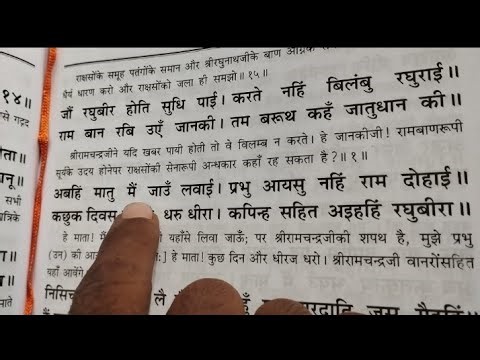 राक्षसोंके समूह पतंगोंके समान और श्रीरघुनाथजीके बाण अग्निके
धैर्य धारण करो और राक्षसोंको जला ही समझो ॥ १५ ॥
जौं रघुबीर होति सुधि पाई। करते नहिं बिलंबु रघुराई ॥
राम बान रबि उएँ जानकी। तम बरूथ कहँ जातुधान की ॥
श्रीरामचन्द्रजीने यदि खबर पायी होती तो वे विलम्ब न करते। हे जानकीजी! रामबाणरूपी
सूर्यके उदय होनेपर राक्षसोंकी सेनारूपी अन्धकार कहाँ रह सकता है? ॥ १ ॥
अबहिं मातु मैं जाउँ लवाई। प्रभु आयसु नहिं राम दोहाई ॥
कछुक दिवस धरु धीरा। कपिन्ह सहित अइहहिं रघुबीरा ॥
हे माता! यहाँसे लिवा जाऊँ; पर श्रीरामचन्द्रजीकी शपथ है, मुझे प्रभु
(उन) की हे माता! कुछ दिन और धीरज धरो। श्रीरामचन्द्रजी वानरोंसहित
यहाँ आवेंगे
निसिच लै
१४॥
सभी